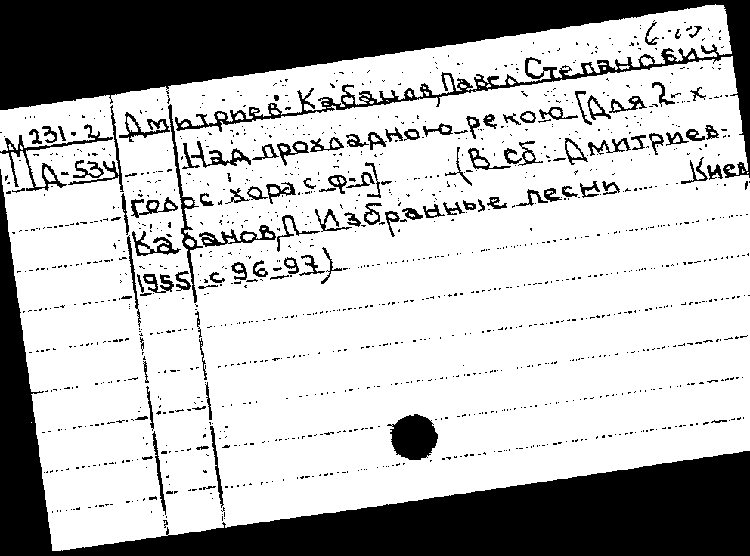 М231-2 Дмитриев-Кабанов, Павел Степанович
Д-534 Над прохладною рекою [Для 2-х
голос. хора с ф-п] (В сб. Дмитриев-
Кабанов, П. Избранные песни Киев,
1955 с 96-97)